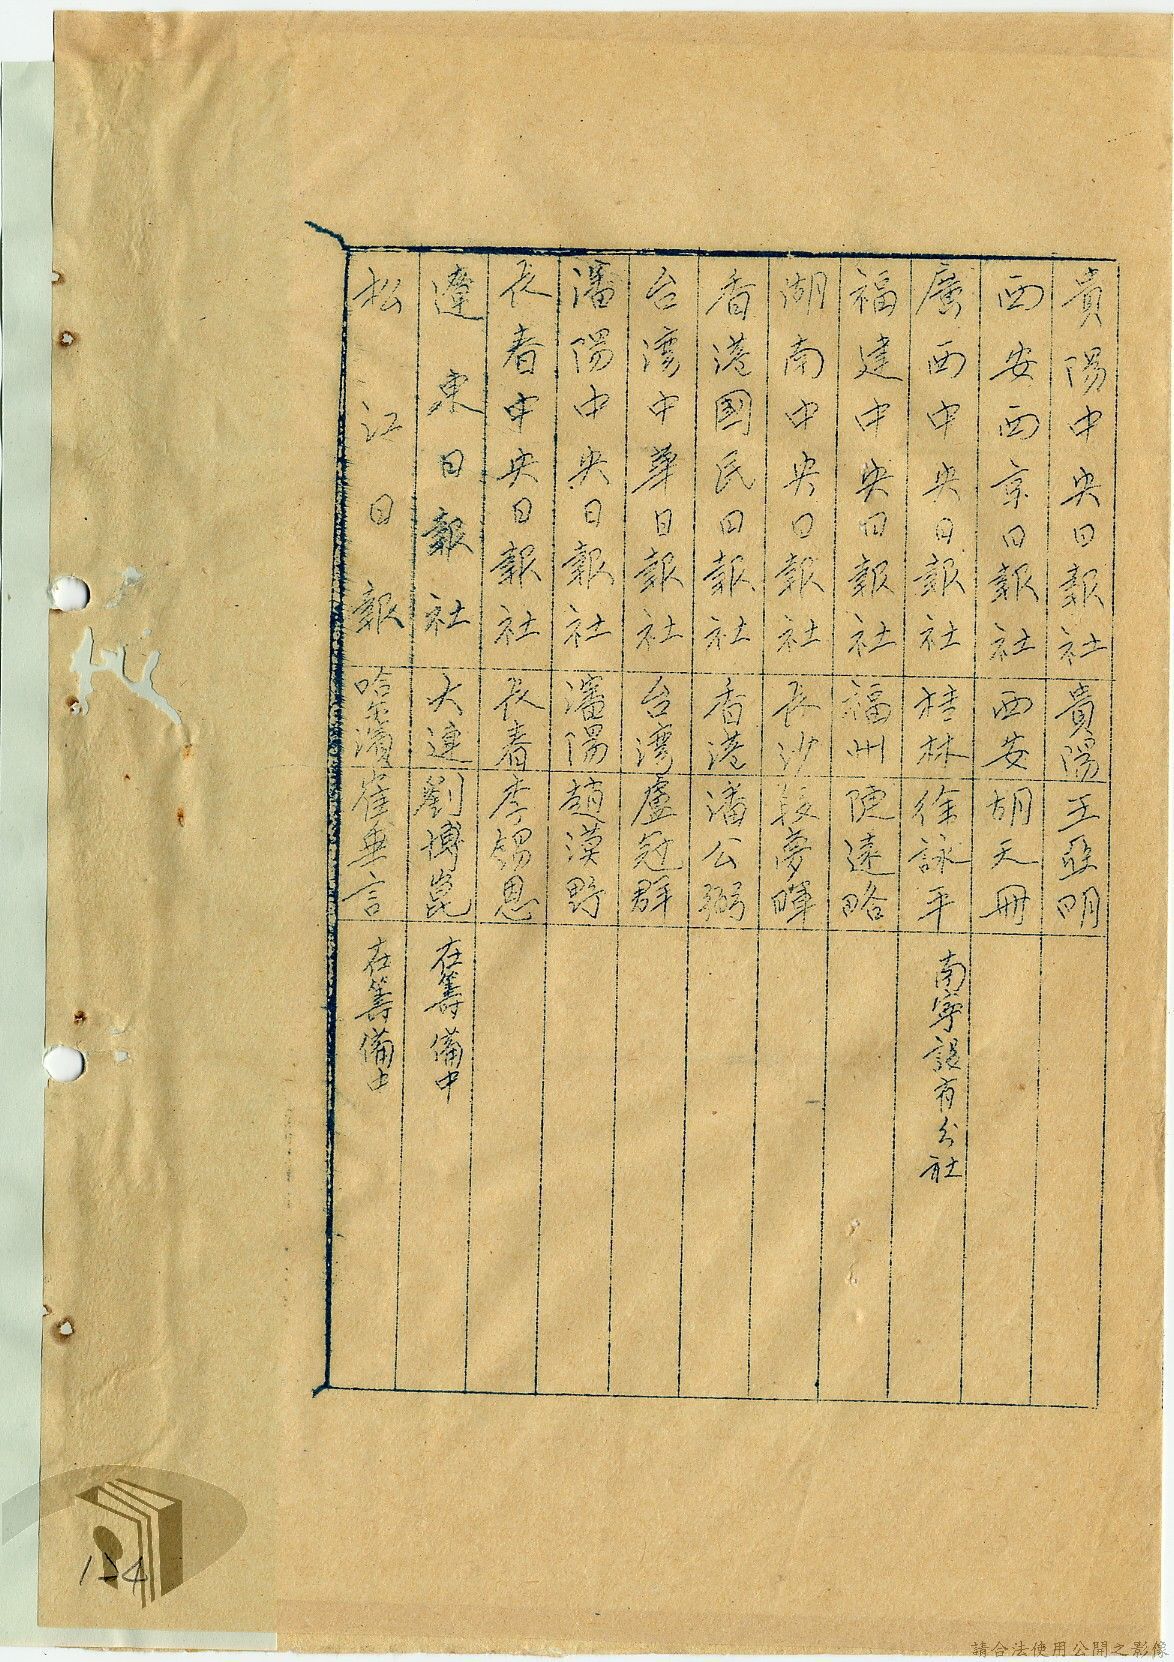 貴陽中央日報社 貴陽 王亞明
西安西京日報社 西安 胡天冊
廣西中央日報社 桂林 徐詠平 南寧設有分社
福建中央日報社 福州 陳遠略
湖南中央日報社 長沙 段夢暉
香港國民日報社 香港 潘公弼
台灣中華日報社 台灣 盧冠群
瀋陽中央日報社 瀋陽 趙漠野
長春中央日報社 長春 李錫恩
遼東日報社 大連 劉博崑 在籌備中
松江日報 哈尔濱 崔垂言 在籌備中
124
請合法使用公開之影像